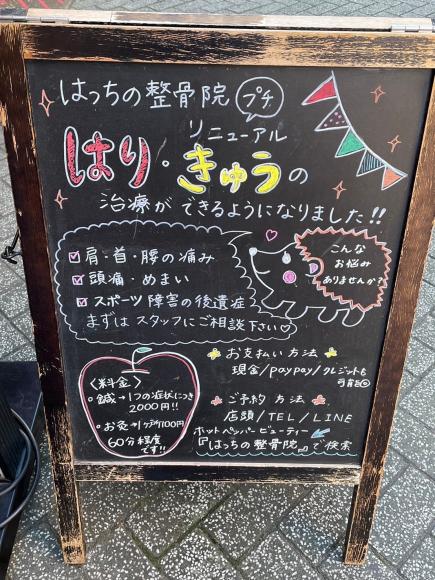 はっちの整骨院
プチ
リニューアル
はり・きゅうの
治療ができるようになりました!!
こんな
お悩み
ありませんか?
☑ 肩・首・腰の痛み
☑ 頭痛・めまい
☑ スポーツ障害の後遺症
まずはスタッフにご相談下さい♡
〈料金〉
・鍼→1つの症状につき
2000円!!
・お灸→1ヶ所100円
60分程度
です!!
お支払い方法
現金/paypay/クレジットも
ご予約方法
店頭/TEL/LINE
ホットペッパービューティー
『はっちの整骨院』で検索